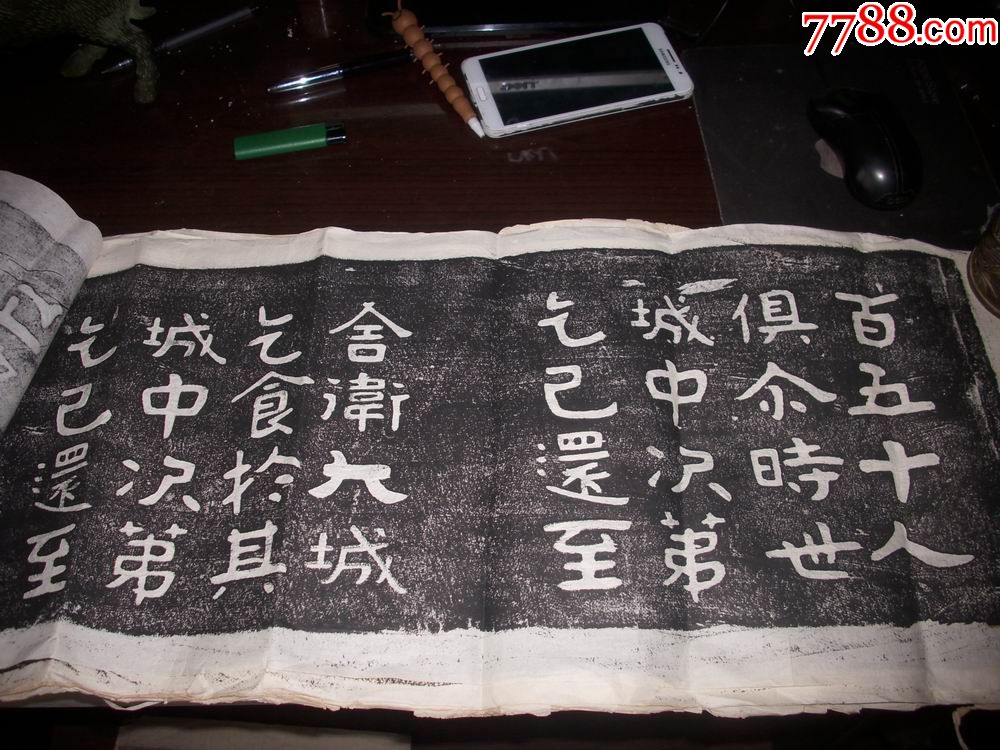 7788.com
百五十人
俱尒時世
城中次苐
乞己還至
舍衛大城
乞食於其
城中次苐
乞己還至
SAMSUNG